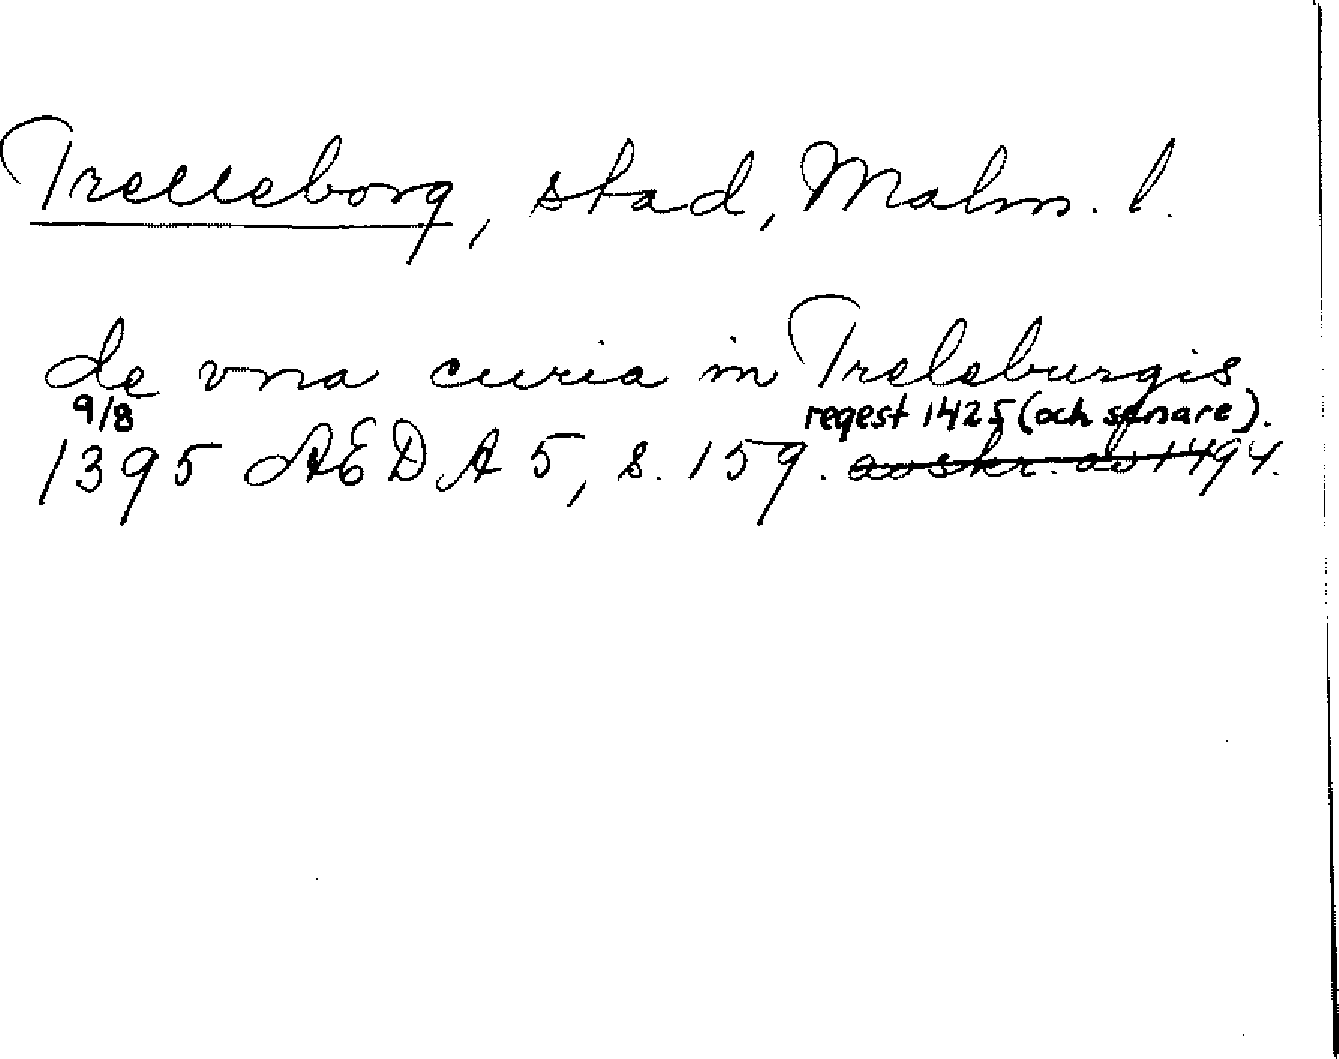 Trelleborg, stad, Malm. l.
de vna curia in Treleburgis
9/8 regest 1425 (och senare).
1395 AEDA 5, s. 159. avskr. av 1494.